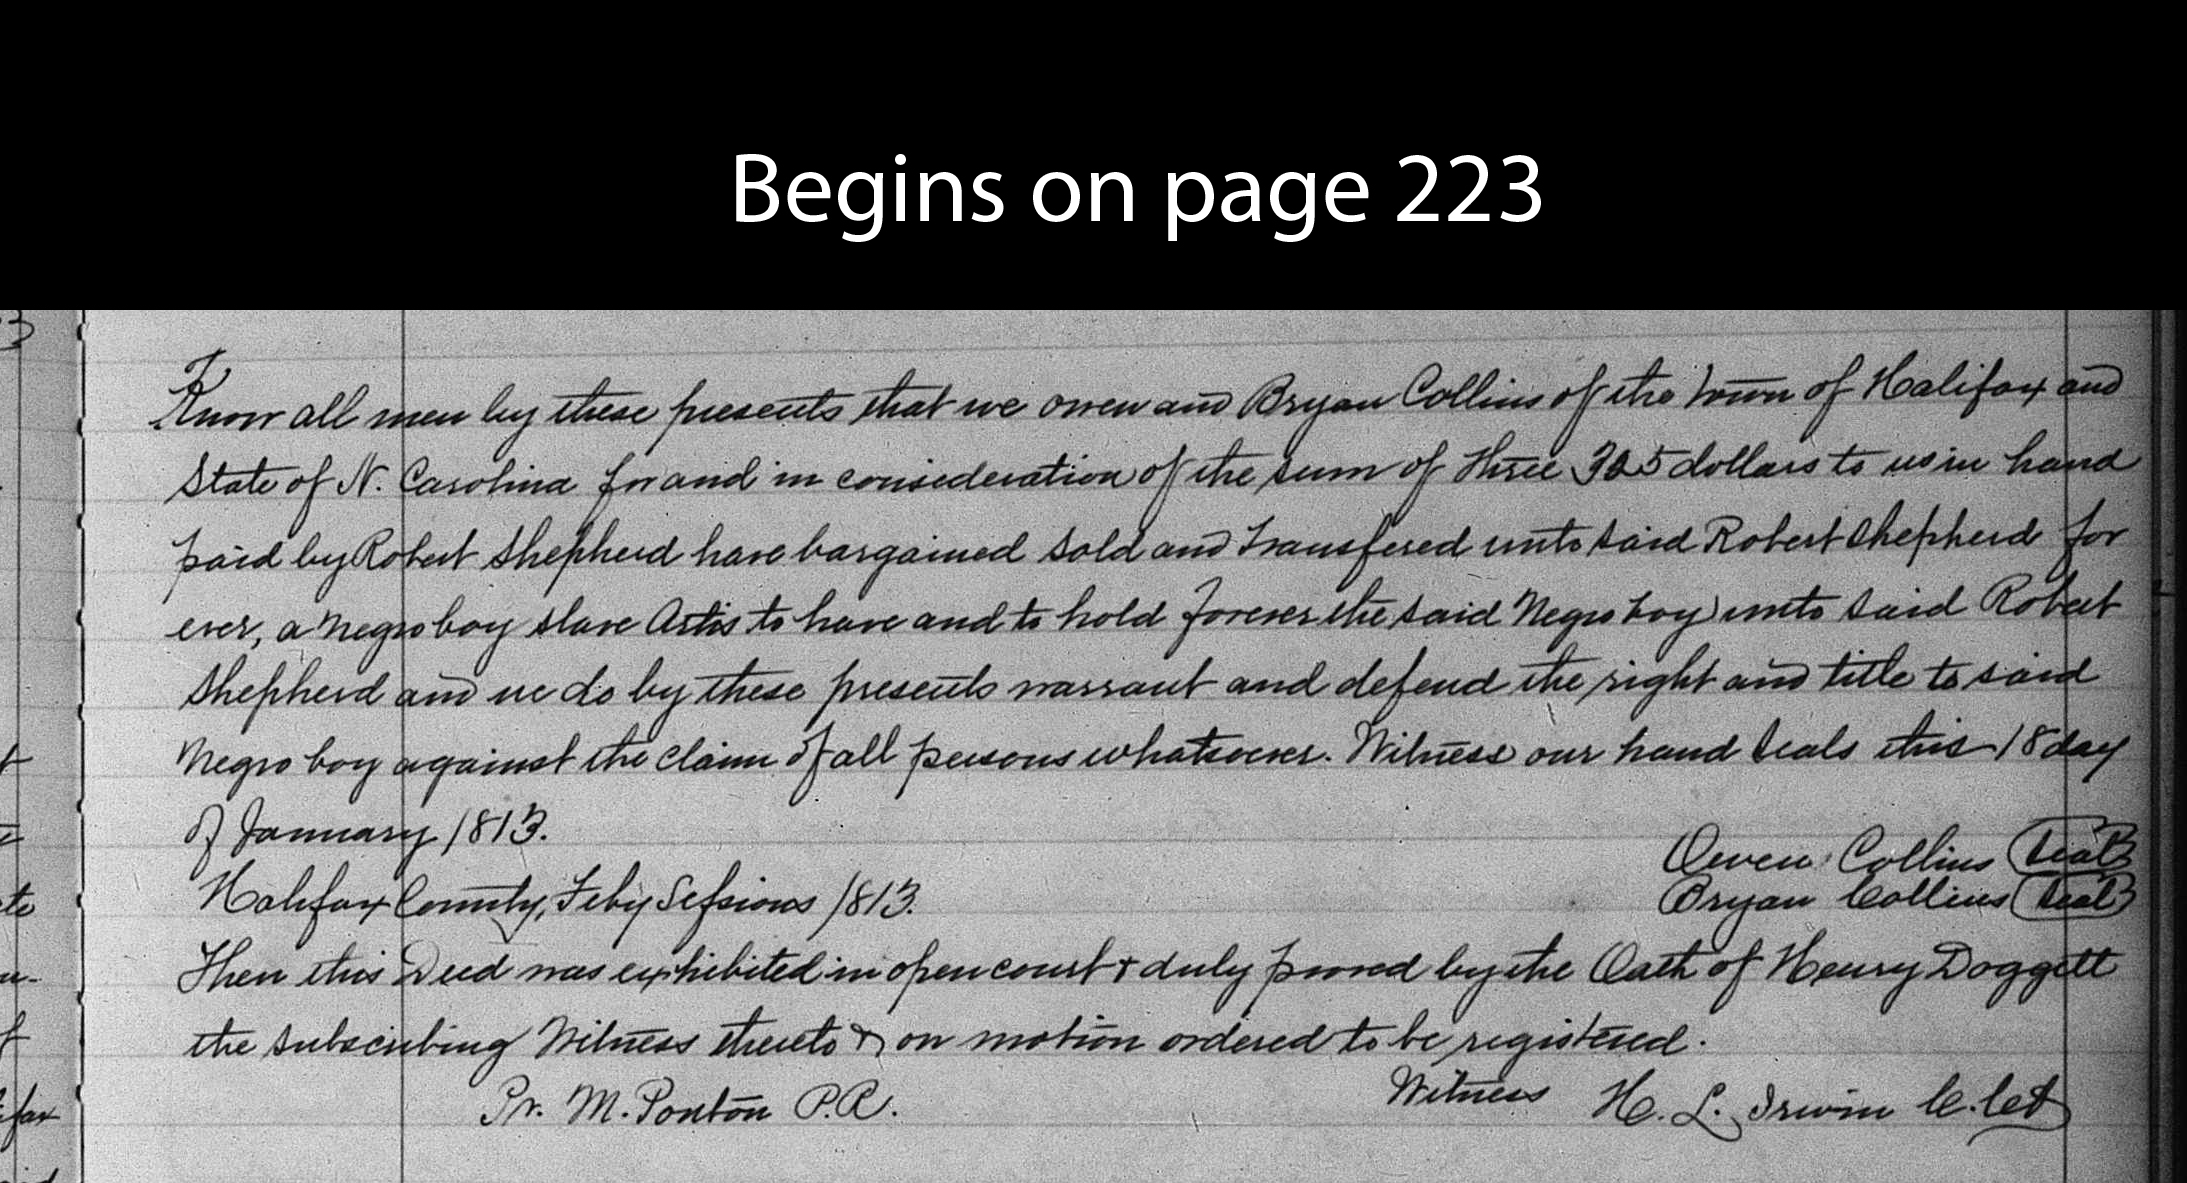 Begins on page 223
Know all men by these presents that we owen and Bryan Collins of the town of Halifax and
State of N. Carolina for and in consideration of the sum of Three 325 dollars to us in hand
paid by Robert Shepherd have bargained sold and transfered unto said Robert Shepherd for
ever, a negro boy slave Artis to have and to hold forever the said Negro boy unto said Robert
Shepherd and we do by these presents warrant and defend the right and title to said
Negro boy against the claim of all persons whatsoever. Witness our hand seals this 18 day
of January 1813.
Owen Collins Seal
Halifax County, Feby Sessions 1813.
Bryan Collins Seal
Then this Deed was exhibited in open court & duly proved by the Oath of Henry Doggett
the subscribing Witness thereto & on motion ordered to be registered.
Pr. M. Ponton P.R.
Witness H. L. Irwin C. Ct